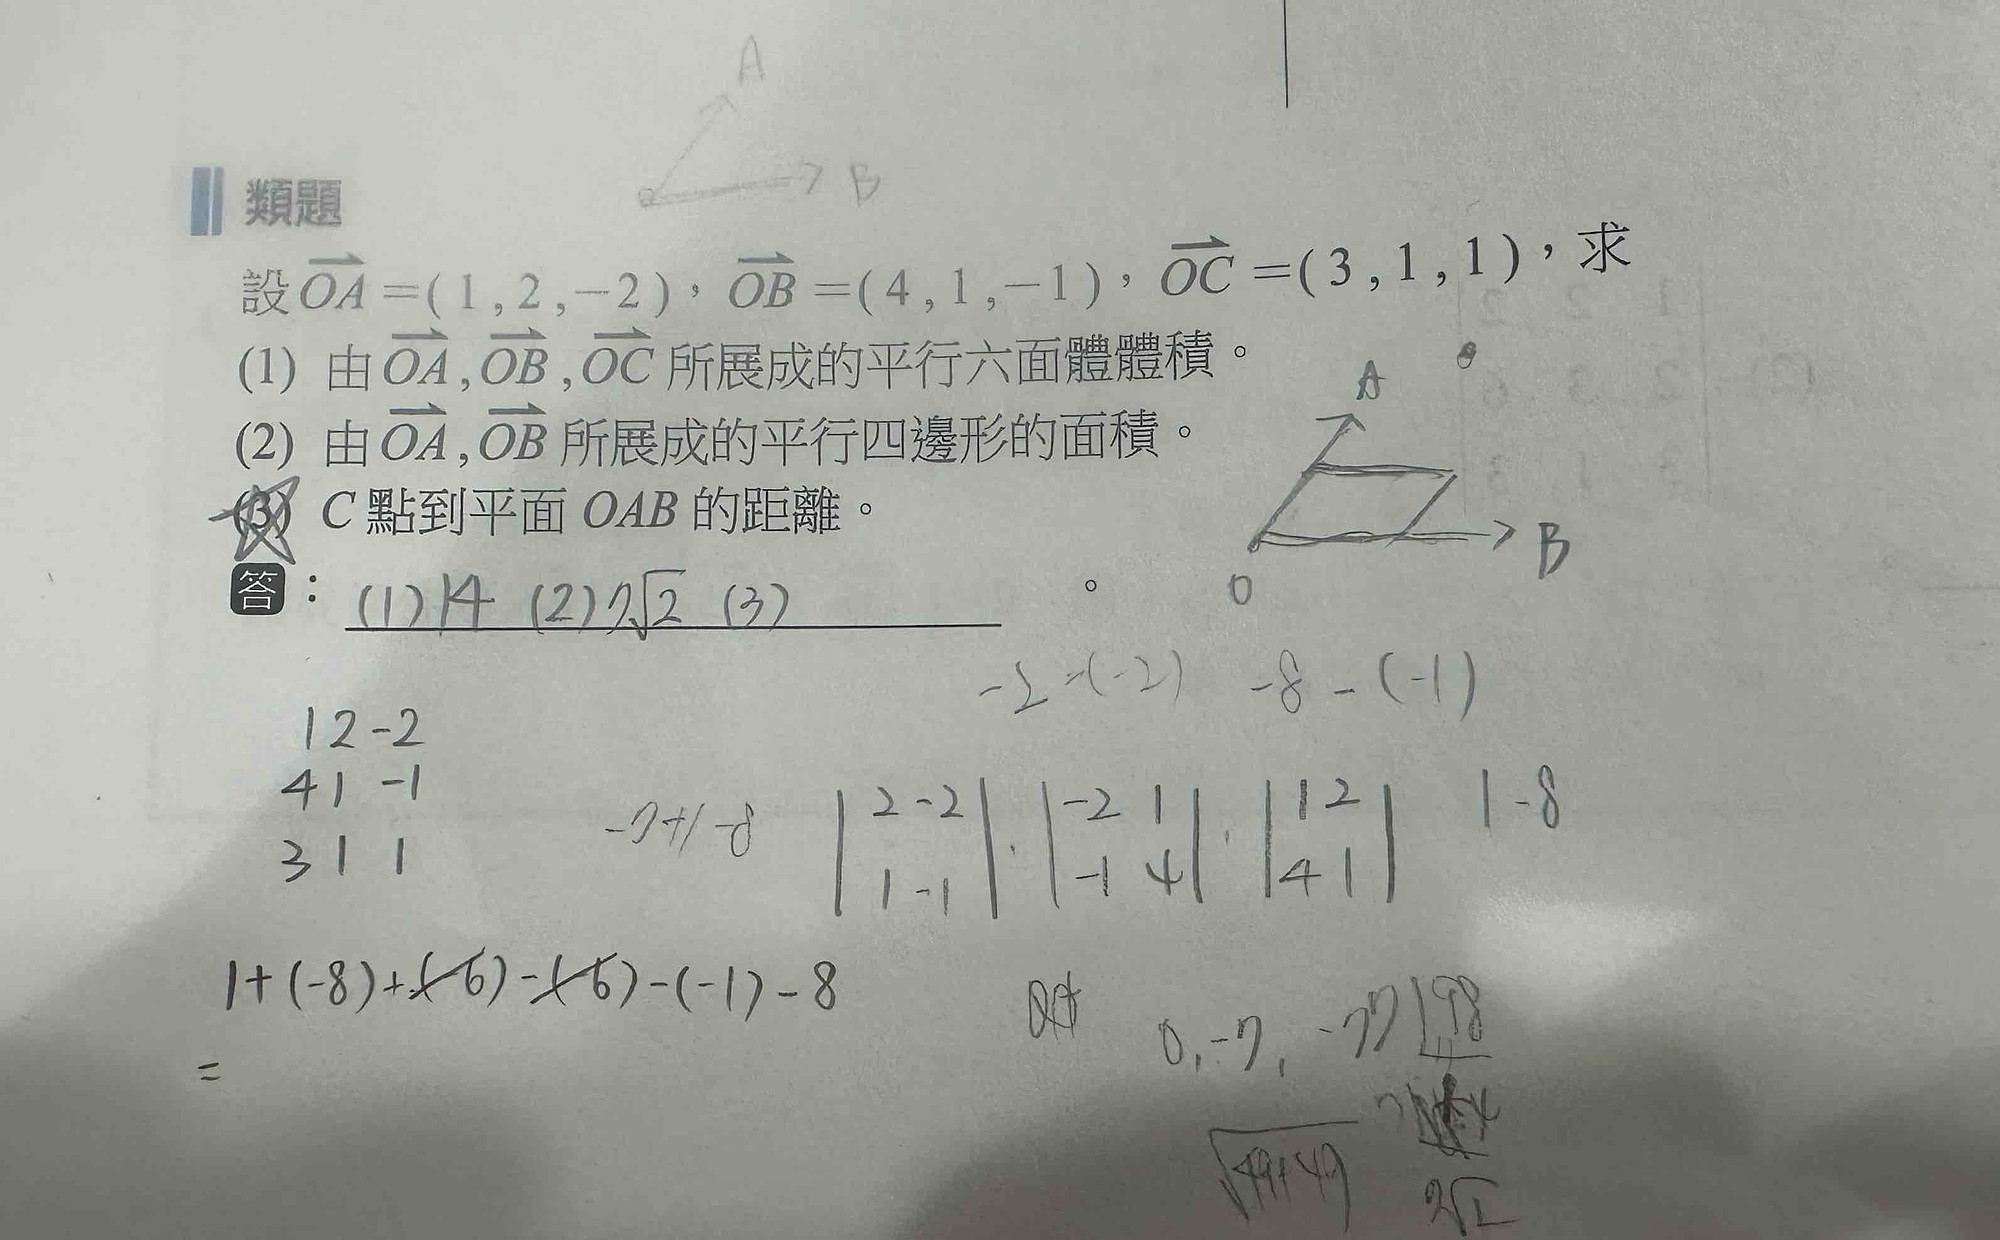 A
B
類題
設OA=(1,2,-2)，OB=(4,1,-1)，OC=(3,1,1)，求
(1) 由OA,OB,OC所展成的平行六面體體積。
(2) 由OA,OB所展成的平行四邊形的面積。
(3) C點到平面OAB的距離。
A
B
O
答：(1)14 (2)7√2 (3) 。
-2-(-2) -8-(-1)
1 2 -2
4 1 -1
3 1 1
-7+1-8
|2 -2| |-2 1| |1 2| 1-8
|1 -1| |-1 4| |4 1|
1+(-8)+(-6)-(-6)-(-1)-8
=
0,-7,-7
7|98
√49+49